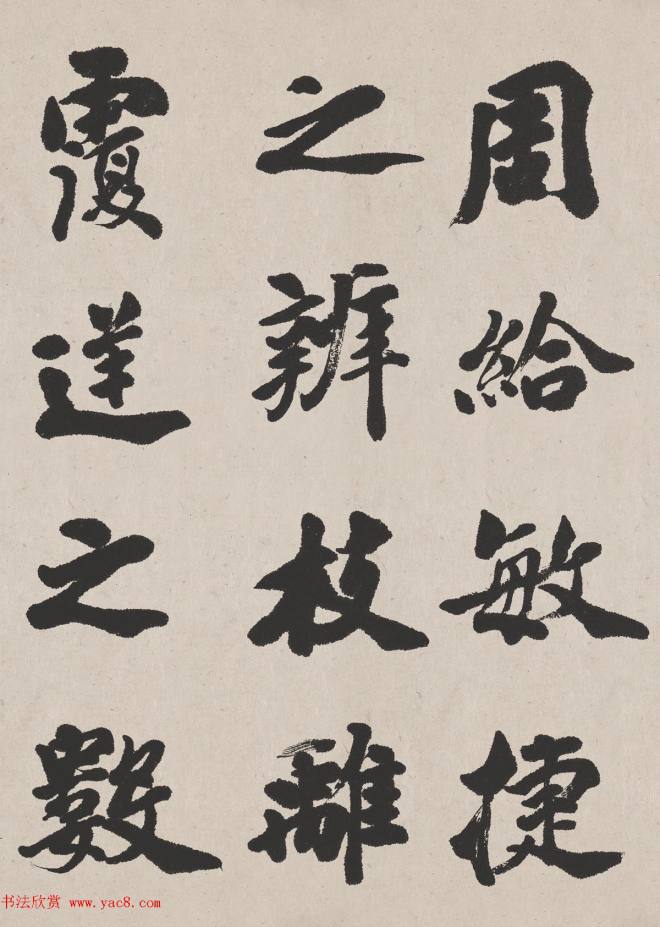 周給敏捷
之辨枝離
覆逆之數
书法欣赏 www.yac8.com